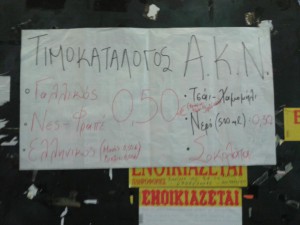 ΤΙΜΟΚΑΤΑΛΟΓΟΣ Α.Κ.Ν.
• Γαλλικός
• Νες-Φραπέ
• Ελληνικός
0,50
• Τσάι-Χαμομήλι
• Νερό (500ml) 0,50
• Σοκολάτα
ΕΝΟΙΚΙΑΖΕΤΑΙ
ΕΝΟΙΚΙΑΖΕΤΑΙ